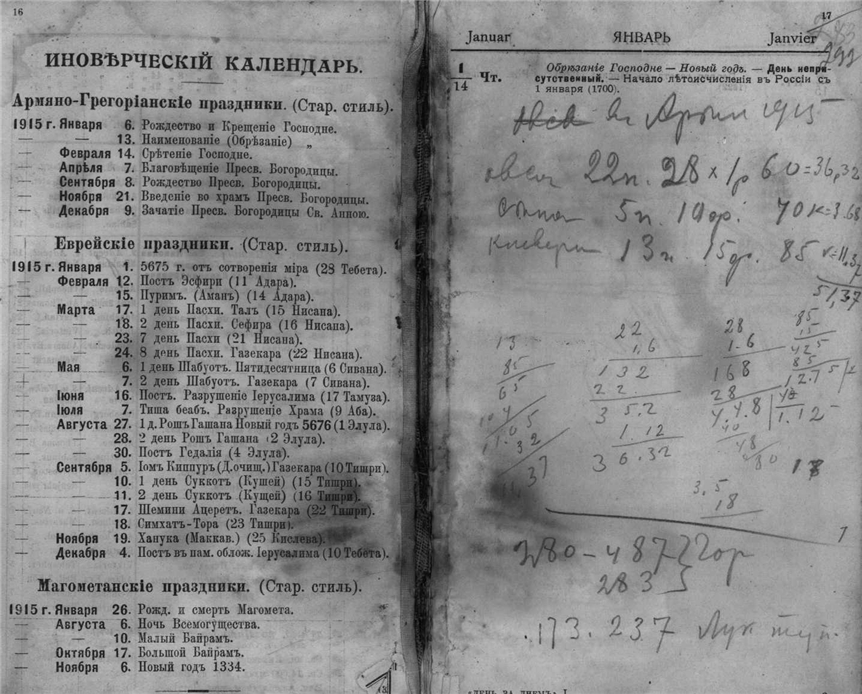 16
ИНОВѢРЧЕСКІЙ КАЛЕНДАРЬ.
Армяно-Грегоріанскіе праздники. (Стар. стиль).
1915 г. Января 6. Рождество и Крещеніе Господне.
— — 13. Наименованіе (Обрѣзаніе) „
— Февраля 14. Срѣтеніе Господне.
— Апрѣля 7. Благовѣщеніе Пресв. Богородицы.
— Сентября 8. Рождество Пресв. Богородицы.
— Ноября 21. Введеніе во храмъ Пресв. Богородицы.
— Декабря 9. Зачатіе Пресв. Богородицы Св. Анною.
Еврейскіе праздники. (Стар. стиль).
1915 г. Января 1. 5675 г. отъ сотворенія міра (28 Тебета).
— Февраля 12. Постъ Эсѳири (11 Адара).
— — 15. Пуримъ. (Аманъ) (14 Адара).
— Марта 17. 1 день Пасхи. Талъ (15 Нисана).
— — 18. 2 день Пасхи. Сефира (16 Нисана).
— — 23. 7 день Пасхи (21 Нисана).
— — 24. 8 день Пасхи. Газекара (22 Нисана).
— Мая 6. 1 день Шабуотъ. Пятидесятница (6 Сивана).
— — 7. 2 день Шабуотъ. Газекара (7 Сивана).
— Іюня 16. Постъ. Разрушеніе Іерусалима (17 Тамуза).
— Іюля 7. Тиша беабъ. Разрушеніе Храма (9 Аба).
— Августа 27. 1 д. Рошъ Гашана Новый годъ 5676 (1 Элула).
— — 28. 2 день Рошъ Гашана (2 Элула).
— — 30. Постъ Гедалія (4 Элула).
— Сентября 5. Іомъ Киппуръ (Д. очищ.) Газекара (10 Тишри).
— — 10. 1 день Суккотъ (Кушей) (15 Тишри).
— — 11. 2 день Суккотъ (Кущей) (16 Тишри).
— — 17. Шемини Ацеретъ. Газекара (22 Тишри).
— — 18. Симхатъ-Тора (23 Тишри).
— Ноября 19. Ханука (Маккав.) (25 Кислева).
— Декабря 4. Постъ въ пам. облож. Іерусалима (10 Тебета).
Магометанскіе праздники. (Стар. стиль).
1915 г. Января 26. Рожд. и смерть Магомета.
— Августа 6. Ночь Всемогущества.
— — 10. Малый Байрамъ.
— Октября 17. Большой Байрамъ.
— Ноября 6. Новый годъ 1334.
17
Januar ЯНВАРЬ Janvier
292
1/14 Чт. Обрѣзаніе Господне — Новый годъ. — День непри-
сутственный. — Начало лѣтоисчисленія въ Россіи съ
1 января (1700).
1915
овса 22п. 28 × 1р 60 = 36,32
сѣна 5п. 10ф. 70к = 3.68
клевера 13п. 15ф. 85 к = 11.37
51,37
13 22 28 85
85 1,6 1.6 15
65 132 168 425
104 22 28 85
11.05 35.2 44.8 40 1.12
32 1.12 40
11.37 36.32 48
80
3,5
18
280 – 487
283
173. 237